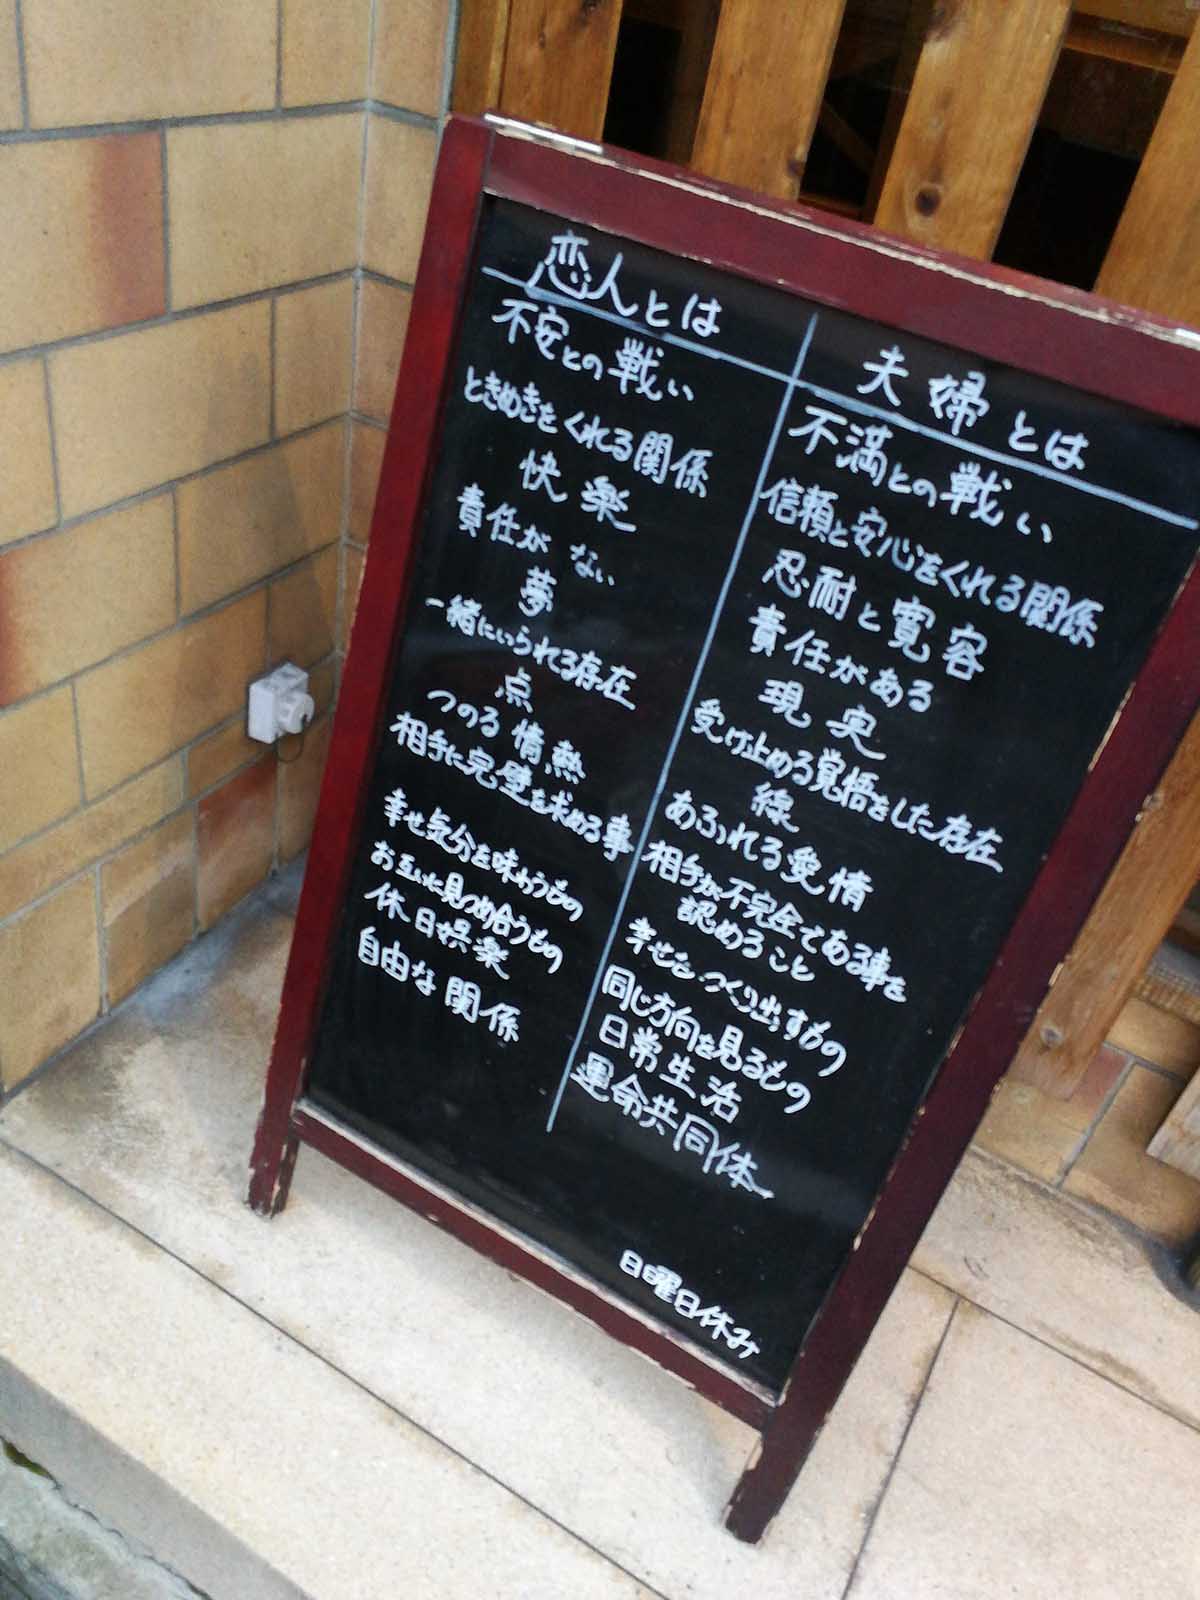 恋人とは
不安との戦い
ときめきをくれる関係
快楽
責任がない
夢
一緒にいられる存在
点
つのる情熱
相手に完璧を求める事
幸せ気分を味わうもの
お互いに見つめ合うもの
休日娯楽
自由な関係
夫婦とは
不満との戦い
信頼と安心をくれる関係
忍耐と寛容
責任がある
現実
受け止める覚悟をした存在
線
あふれる愛情
相手が不完全である事を
認めること
幸せをつくり出すもの
同じ方向を見るもの
日常生活
運命共同体
日曜日休み